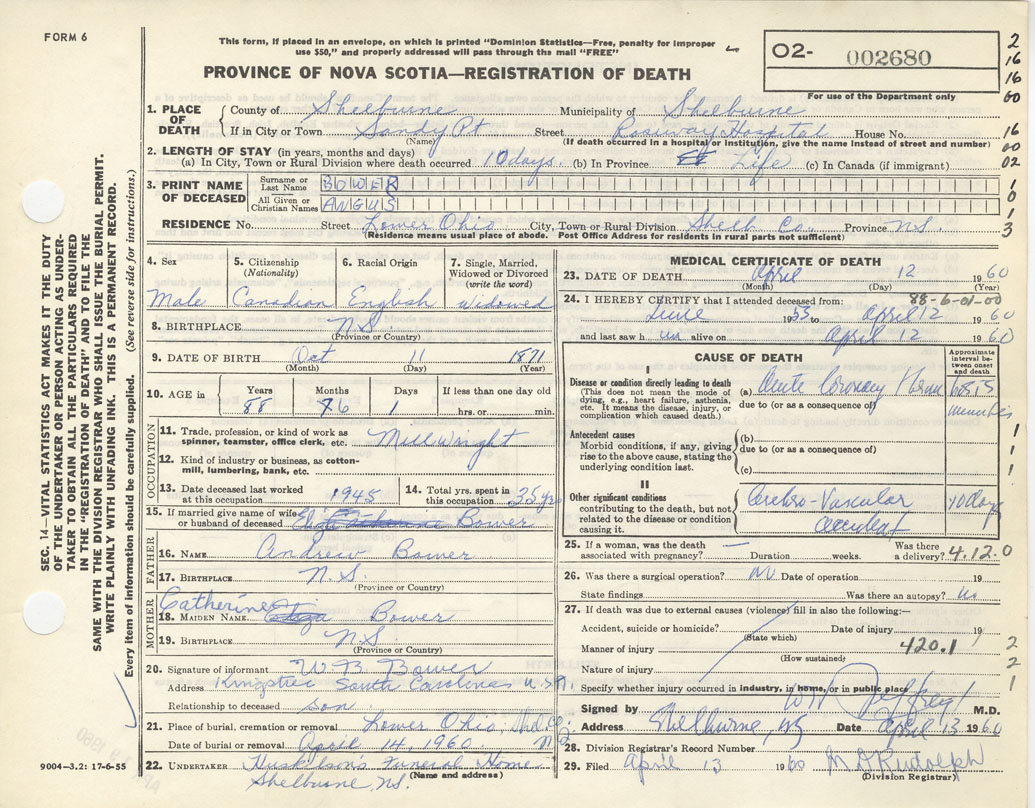 FORM 6
This form, if placed in an envelope, on which is printed "Dominion Statistics—Free, penalty for improper
use $50," and properly addressed will pass through the mail "FREE"
PROVINCE OF NOVA SCOTIA—REGISTRATION OF DEATH
02- 002680
For use of the Department only
2
16
16
60
1. PLACE OF DEATH
County of Shelburne Municipality of Shelburne
If in City or Town Sandy Pt Street Roseway Hospital House No. 16
(Name) (If death occurred in a hospital or institution, give the name instead of street and number) 00
2. LENGTH OF STAY (in years, months and days)
(a) In City, Town or Rural Division where death occurred 10 days (b) In Province Life (c) In Canada (if immigrant) 02
3. PRINT NAME OF DECEASED
Surname or Last Name BOWER 1
All Given or Christian Names ANGUS 0 1
RESIDENCE No. Street Lower Ohio City, Town or Rural Division Shelb Co., Province N.S. 3
(Residence means usual place of abode. Post Office Address for residents in rural parts not sufficient)
4. Sex Male
5. Citizenship (Nationality) Canadian
6. Racial Origin English
7. Single, Married, Widowed or Divorced (write the word) widowed
8. BIRTHPLACE N.S.
(Province or Country)
9. DATE OF BIRTH Oct 11 1871
(Month) (Day) (Year)
10. AGE in Years Months Days If less than one day old
88 6 1 hrs. or min.
OCCUPATION
11. Trade, profession, or kind of work as
spinner, teamster, office clerk, etc. Millwright
12. Kind of industry or business, as cotton-
mill, lumbering, bank, etc.
13. Date deceased last worked
at this occupation 1945
14. Total yrs. spent in
this occupation 35 yrs
15. If married give name of wife
or husband of deceased Eliza Catherine Bower
FATHER
16. NAME Andrew Bower
17. BIRTHPLACE N.S.
(Province or Country)
MOTHER
Catherine
18. MAIDEN NAME Eliza Bower
19. BIRTHPLACE N.S
(Province or Country)
20. Signature of informant W B Bower
Address Kingstree South Carolina U.S.A.
Relationship to deceased son
21. Place of burial, cremation or removal Lower Ohio, Shel Co.
Date of burial or removal April 14, 1960 N.S.
22. UNDERTAKER Huskilson's Funeral Home
(Name and address)
Shelburne, N.S.
9004-3.2: 17-6-55
MEDICAL CERTIFICATE OF DEATH
23. DATE OF DEATH April 12 1960
(Month) (Day) (Year)
88-6-01-00
24. I HEREBY CERTIFY that I attended deceased from:
June 1955 to April 12 1960
and last saw h im alive on April 12 1960
CAUSE OF DEATH
Approximate interval between onset and death
I
Disease or condition directly leading to death
(This does not mean the mode of
dying, e.g., heart failure, asthenia,
etc. It means the disease, injury, or
complication which caused death.)
(a) Acute Coronary
due to (or as a consequence of)
minutes
Antecedent causes
Morbid conditions, if any, giving
rise to the above cause, stating the
underlying condition last.
(b)
due to (or as a consequence of)
(c)
1
1
1
II
Other significant conditions
contributing to the death, but not
related to the disease or condition
causing it.
Cerebro-Vascular
accident
10 days
25. If a woman, was the death
associated with pregnancy? — Duration weeks. Was there
a delivery? 4.12.0
26. Was there a surgical operation? no Date of operation 19
State findings Was there an autopsy? no
27. If death was due to external causes (violence) fill in also the following:—
Accident, suicide or homicide? Date of injury 19
(State which)
Manner of injury 420.1 2
(How sustained) 2
Nature of injury 1
Specify whether injury occurred in industry, in home, or in public place
Signed by M.D.
Address Shelburne, NS Date April 13 1960
28. Division Registrar's Record Number
29. Filed April 13 1960 M D Rudolph
(Division Registrar)
SEC. 14—VITAL STATISTICS ACT MAKES IT THE DUTY
OF THE UNDERTAKER OR PERSON ACTING AS UNDER-
TAKER TO OBTAIN ALL THE PARTICULARS REQUIRED
IN THE "REGISTRATION OF DEATH" AND TO FILE THE
SAME WITH THE DIVISION REGISTRAR WHO SHALL ISSUE THE BURIAL PERMIT.
WRITE PLAINLY WITH UNFADING INK. THIS IS A PERMANENT RECORD.
Every item of information should be carefully supplied. (See reverse side for instructions.)